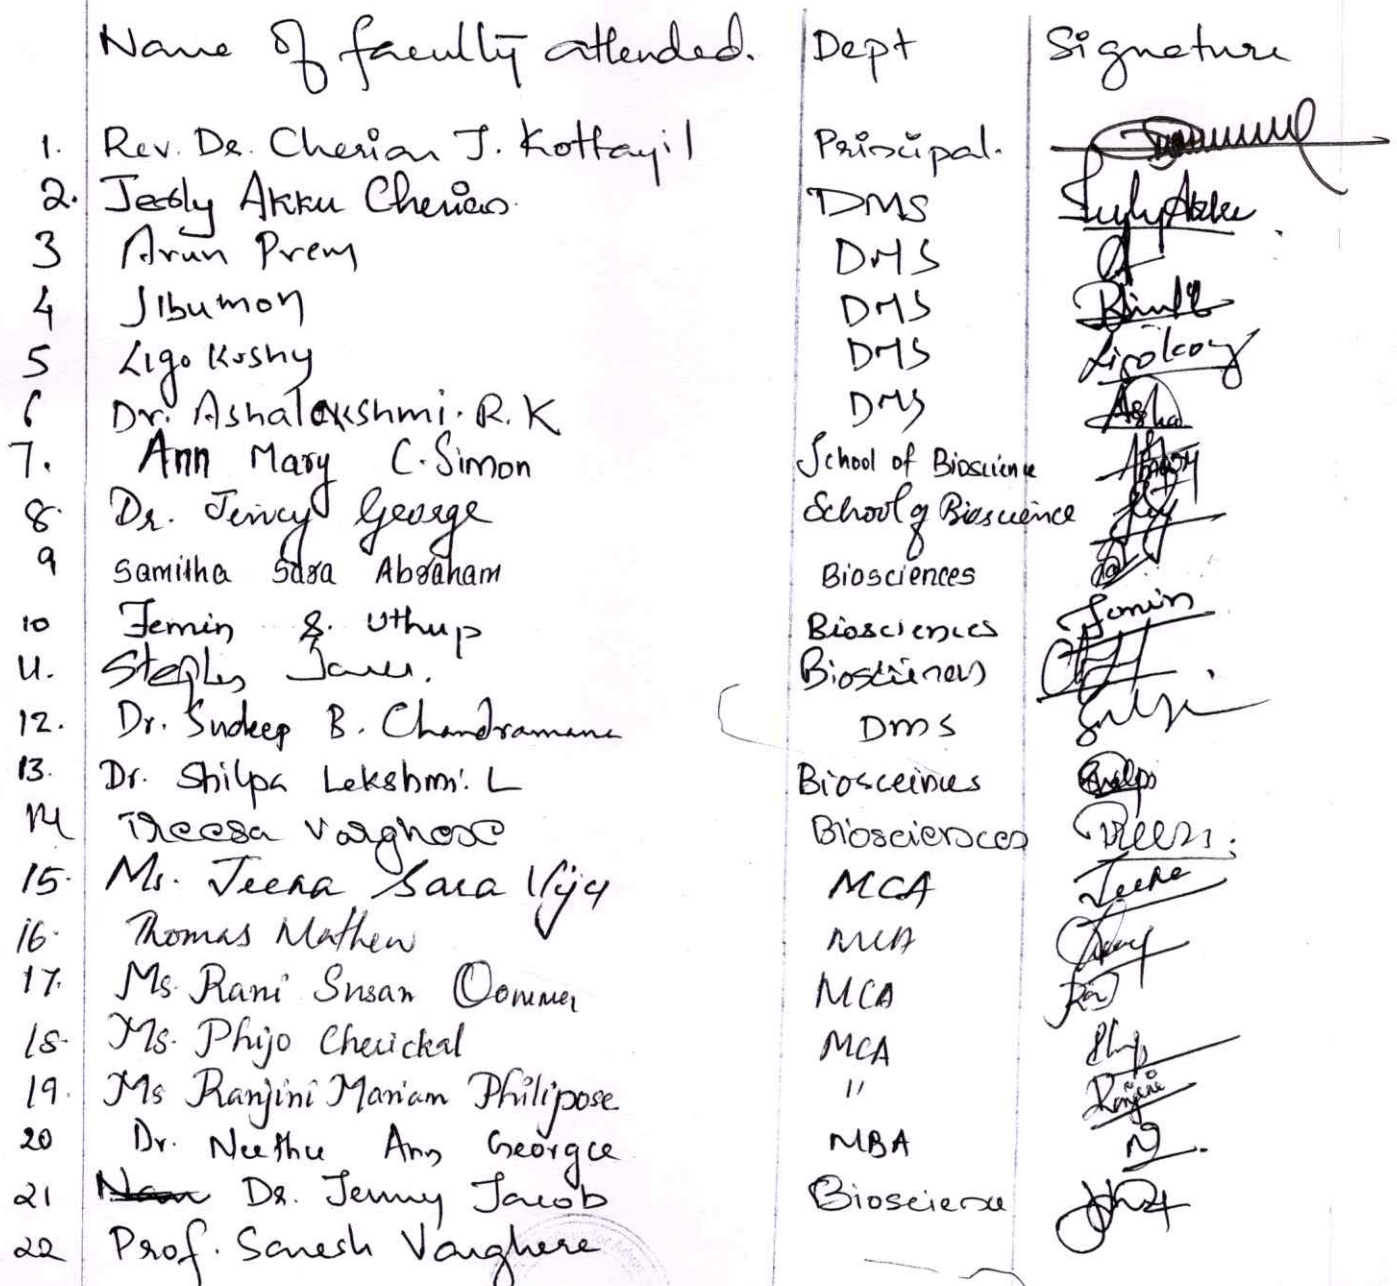 Name of faculty attended. Dept Signature
1. Rev. Dr. Cherian J. Kottayil Principal.
2. Jesly Akku Cherian DMS
3 Arun Prem DMS
4 Jibumon DMS
5 Ligo Koshy DMS Ligo Koshy
6 Dr. Ashalakshmi. R.K DMS Asha
7. Ann Mary C. Simon School of Bioscience
8. Dr. Jency George School of Bioscience
9 Samitha Sara Abraham Biosciences
10 Femin S. Uthup Biosciences Femin
11. Biosciences
12. Dr. Sudeep B. Chandramana DMS
13. Dr. Shilpa Lekshmi. L Biosceinces Shilpa
14 Treesa Varghese Biosciences
15. Ms. Jeena Sara Viju MCA Jeena
16. Thomas Mathew MCA
17. Ms. Rani Susan Oommen MCA
18. Ms. Phijo Cherickal MCA
19. Ms Ranjini Mariam Philipose " Ranjini
20 Dr. Neethu Ann Georgee MBA
21 Dr. Jenny Jacob Bioscience
22 Prof. Sanesh Varghese